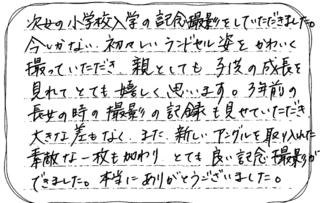 次女の小学校入学の記念撮影をしていただきました。
今しかない初々しいランドセル姿をかわいく
撮っていただき、親としても子供の成長を
見れてとても嬉しく思います。3年前の
長女の時の撮影の記録も見せていただき
大きな差もなく、また、新しいアングルを取り入れた
素敵な一枚も加わり とても良い記念撮影が
できました。本当にありがとうございました。